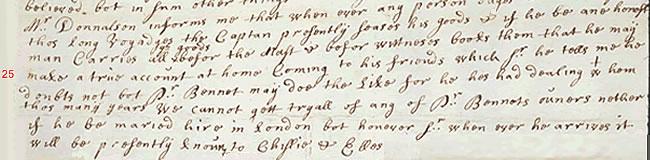 believed bot in sum other things
Mr. Donnalson informs me that when ever any person
thos long voyadges the Captan presently seases his goods & if he be ane honest
man Carries all his goods befor the Mast & befor witneses books them that he may
25 make a true account at home Coming to his friends which Sr. he tells me he
doubts not bot Dr. Bennet may doe the like for he hes had dealing wt them
thos many years We cannot gett tryall of any of Dr. Bennets ouners nether
if he be maried hire in London bot houever Sr. when ever he arrives it
will be presently knoun to Chiffie & Elles